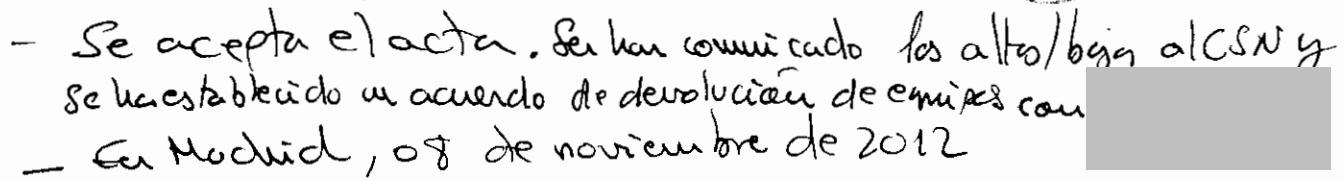 - Se acepta el acta. Se han comunicado las altas/bajas al CSN y
se ha establecido un acuerdo de devolución de equipos con
- En Madrid, 08 de noviembre de 2012